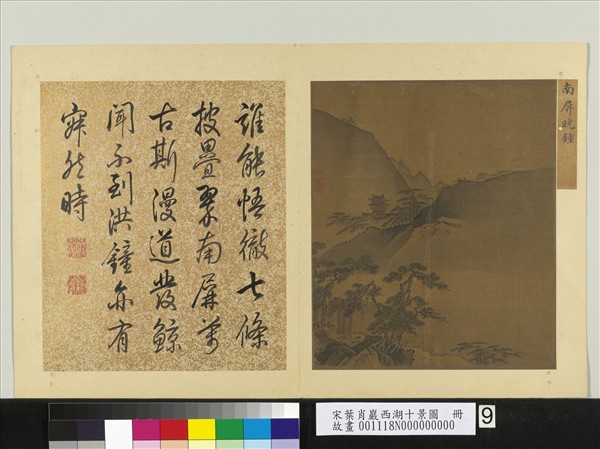 南屏晚鐘
誰能悟徹七條
披疊翠南屏萬
古斯漫道發鯨
聞不到洪鐘亦有
寂然時
宋葉肖巖西湖十景圖 冊
故畫 001118N000000000
9